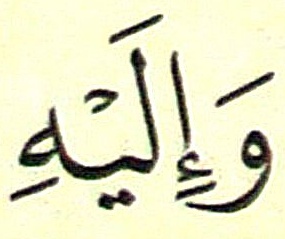 وَإِلَيْهِ